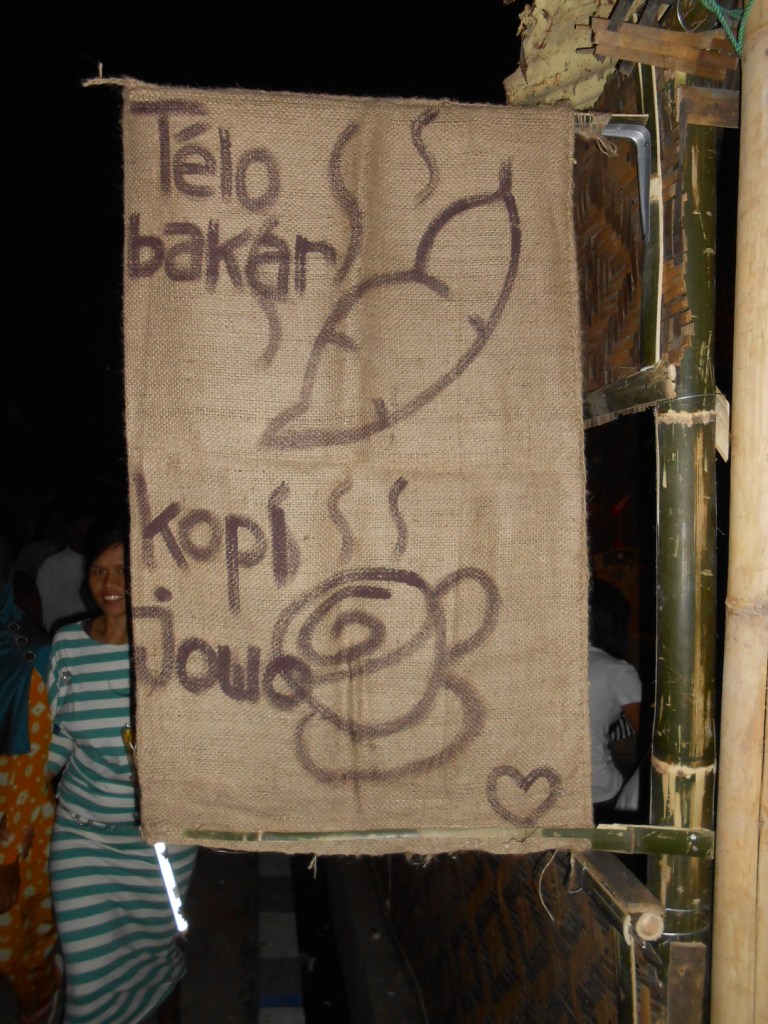 Télo
bakar
kopi
jowo